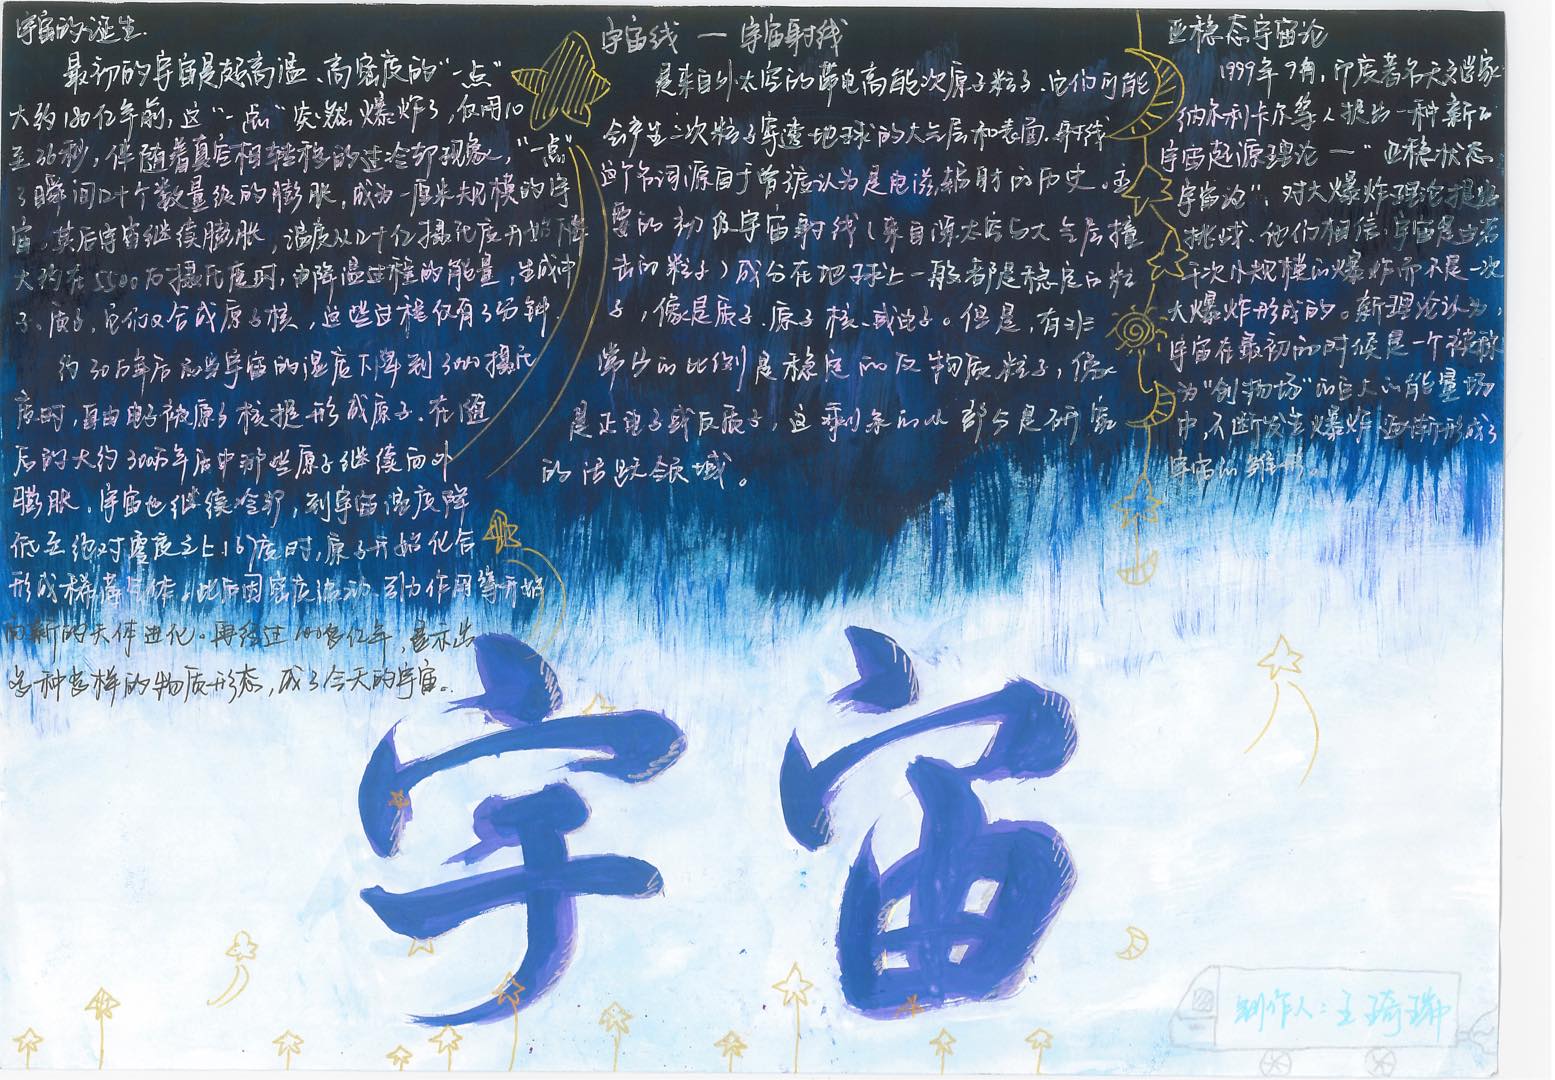 宇宙的诞生.
最初的宇宙是超高温、高密度的“一点”
大约180亿年前，这“一点”突然爆炸了，仅用10
至36秒，伴随着真空相转移的过冷却现象，“一点”
了瞬间12个数量级的膨胀，成为一厘米规模的宇
宙，其后宇宙继续膨胀，温度从
大约在5500万摄氏度时，由降温过程的能量，生成中
子、质子，它们又合成原子核，这些过程仅有3分钟
约30万年后 当宇宙的温度下降到3000摄氏
度时，自由电子被原子核捉 形成原子. 在随
后的大约300万年后中那些原子继续向外
膨胀，宇宙也继续冷却，到宇宙温度降
低至绝对零度之上167度时，原子开始化合
形成稀薄气体。此后因密度波动 引力作用等开始
向新的天体进化。再经过100多亿年，显示出
多种多样的物质形态，成了今天的宇宙。
宇宙线 — 宇宙射线
是来自外太空的带电高能次原子粒子. 它们可能
会产生二次粒子穿透地球的大气层和表面. 射线
这个名词源自于曾被认为是电磁辐射的历史。主
要的初级宇宙射线（来自深太空与大气层撞
击的粒子）成分在地球上一般都是稳定的粒
子，像是质子、原子核、或电子。但是，有非
常少的比例是稳定的反物质粒子，像
是正电子或反质子，这剩余的小部分是研究
的活跃领域。
亚稳态宇宙论
1999年9月，印度著名天文学家
纳尔利卡尔等人提出一种新的
宇宙起源理论—“亚稳状态
宇宙论”，对大爆炸理论提出
挑战. 他们相信，宇宙是由若
干次小规模的爆炸而不是一次
大爆炸形成的。新理论认为，
宇宙在最初的时候是一个被称
为“创物场”的巨大的能量场
中，不断发生爆炸 逐渐形成了
宇宙的雏形。
宇宙
制作人：王琦瑞